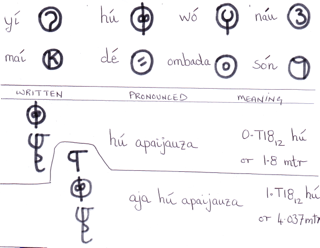 yí hú wó náu
maí dé ombada són
WRITTEN PRONOUNCED MEANING
hú apaijauza 0.T18₁₂ hú
or 1.8 mtr
aja hú apaijauza 1.T18₁₂ hú
or 4.037mtr